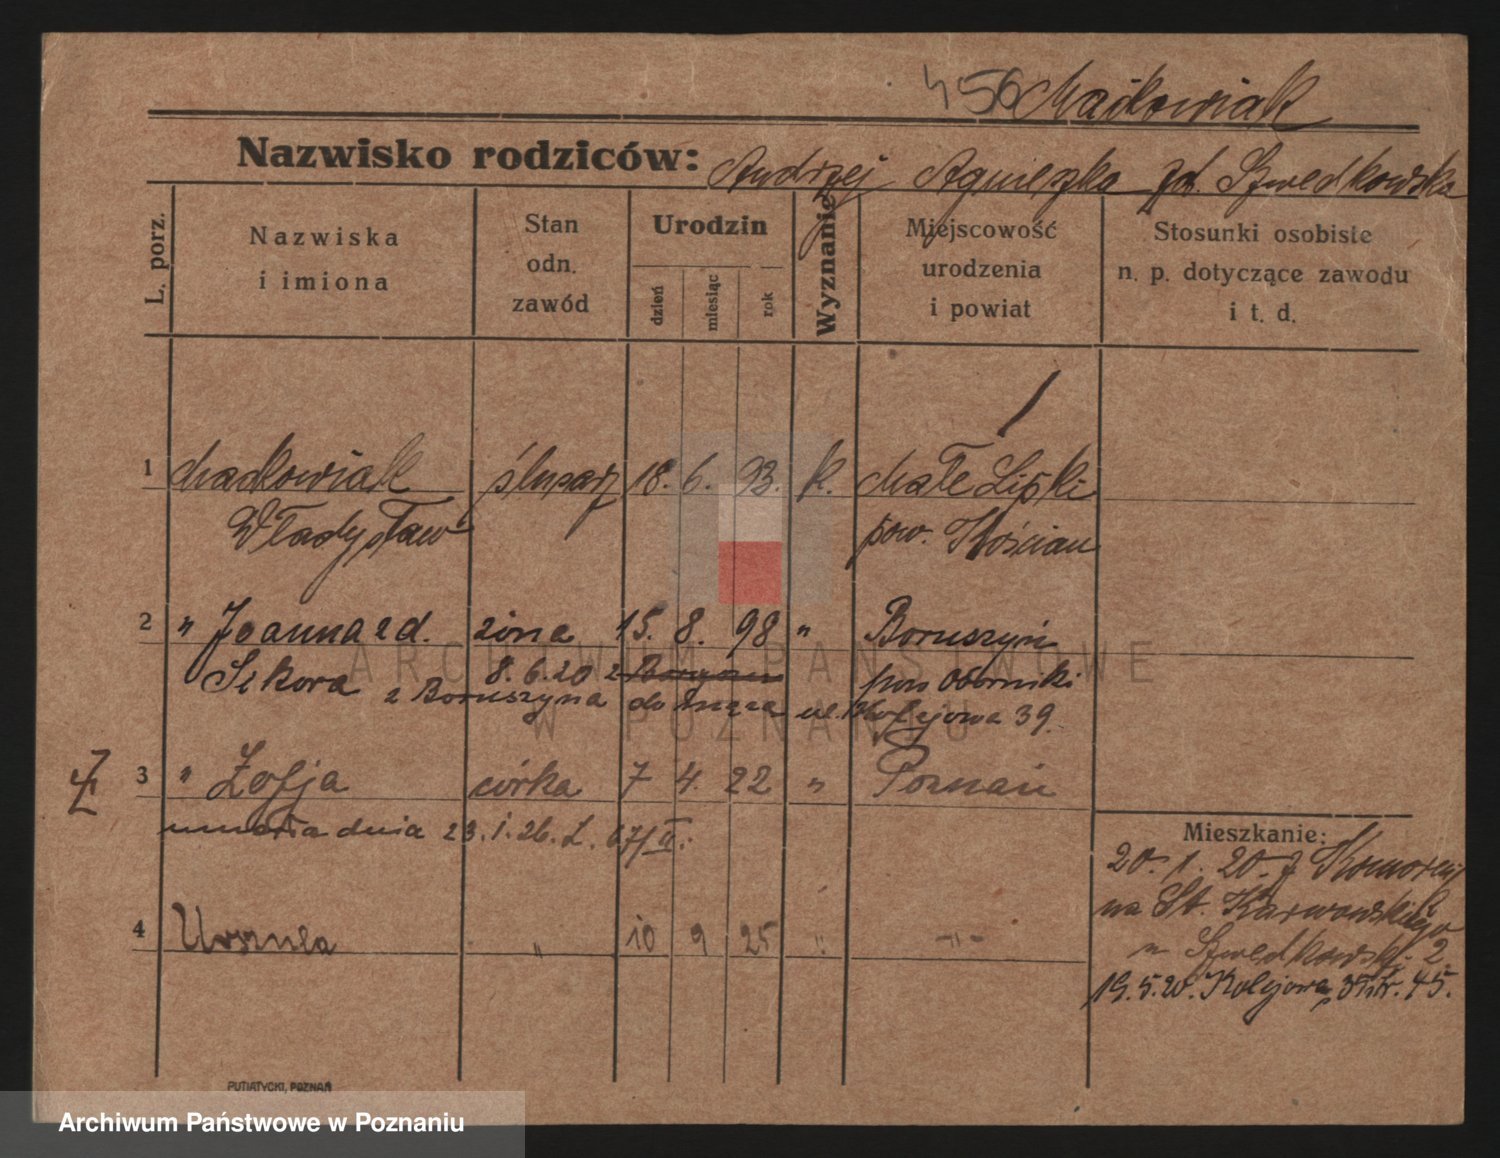 456 Maćkowiak
Nazwisko rodziców: Andrzej Agnieszka zd. Szwedkowska
L. porz.
Nazwiska
i imiona
Stan
odn.
zawód
Urodzin
dzień
miesiąc
rok
Wyznanie
Miejscowość
urodzenia
i powiat
Stosunki osobiste
n. p. dotyczące zawodu
i t. d.
1 Maćkowiak ślusarz 18. 6. 93. k. Małe Lipki
Władysław pow. Kościan
2 " Joanna zd. żona 15. 8. 98 " Boruszyn
Sikora 8.6.20 z pow Oborniki
z Boruszyna do męża ul. Kolejowa 39.
3 " Zofja córka 7 4. 22 " Poznań
umarła dnia 23.1.26.
Mieszkanie:
20. 1. 20. z
na St. Karwowskiego
u Szwedkowskj. 2.
4 Urszula " 10 9 25 " -"-
19.5.20. Kolejowa 45.
PUTIATYCKI, POZNAŃ
ARCHIWUM PAŃSTWOWE
W POZNANIU
Archiwum Państwowe w Poznaniu